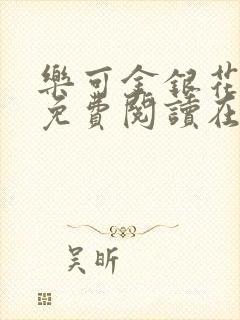 樂可金銀花
免費閱讀在
吴昕